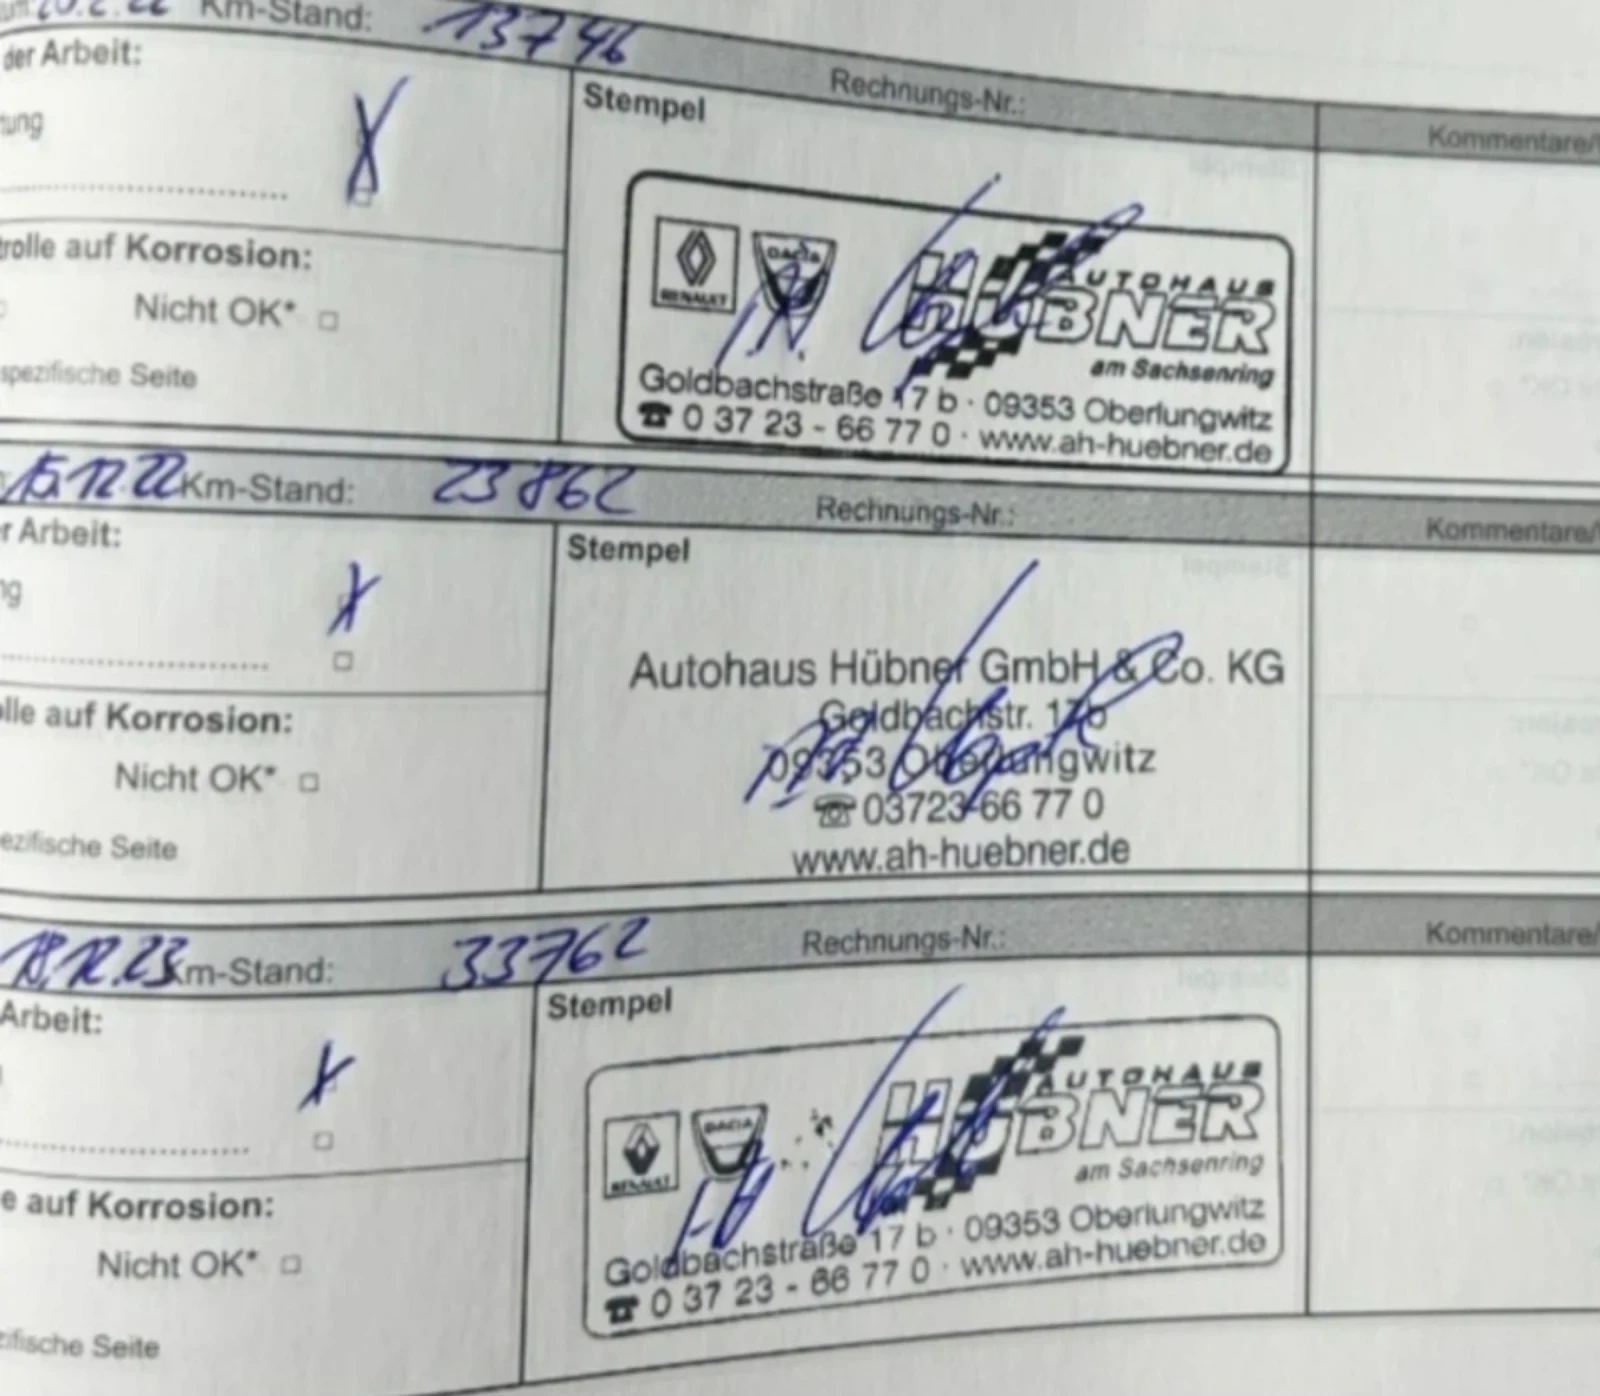 Km-Stand: 13746
der Arbeit:
Rechnungs-Nr.:
Kommentare/
Stempel
tung
RENAULT
DACIA
AUTOHAUS
HÜBNER
am Sachsenring
Goldbachstraße 17 b · 09353 Oberlungwitz
☎ 0 37 23 - 66 77 0 · www.ah-huebner.de
trolle auf Korrosion:
Nicht OK*
spezifische Seite
15.12.22 Km-Stand: 23862
Rechnungs-Nr.:
Kommentare/
r Arbeit:
Stempel
ng
Autohaus Hübner GmbH & Co. KG
Goldbachstr. 17b
09353 Oberlungwitz
☎ 03723-66 77 0
www.ah-huebner.de
olle auf Korrosion:
Nicht OK*
ezifische Seite
18.12.23 Km-Stand: 33762
Rechnungs-Nr.:
Kommentare/
Arbeit:
Stempel
RENAULT
DACIA
AUTOHAUS
HÜBNER
am Sachsenring
Goldbachstraße 17 b · 09353 Oberlungwitz
☎ 0 37 23 - 66 77 0 · www.ah-huebner.de
e auf Korrosion:
Nicht OK*
zifische Seite